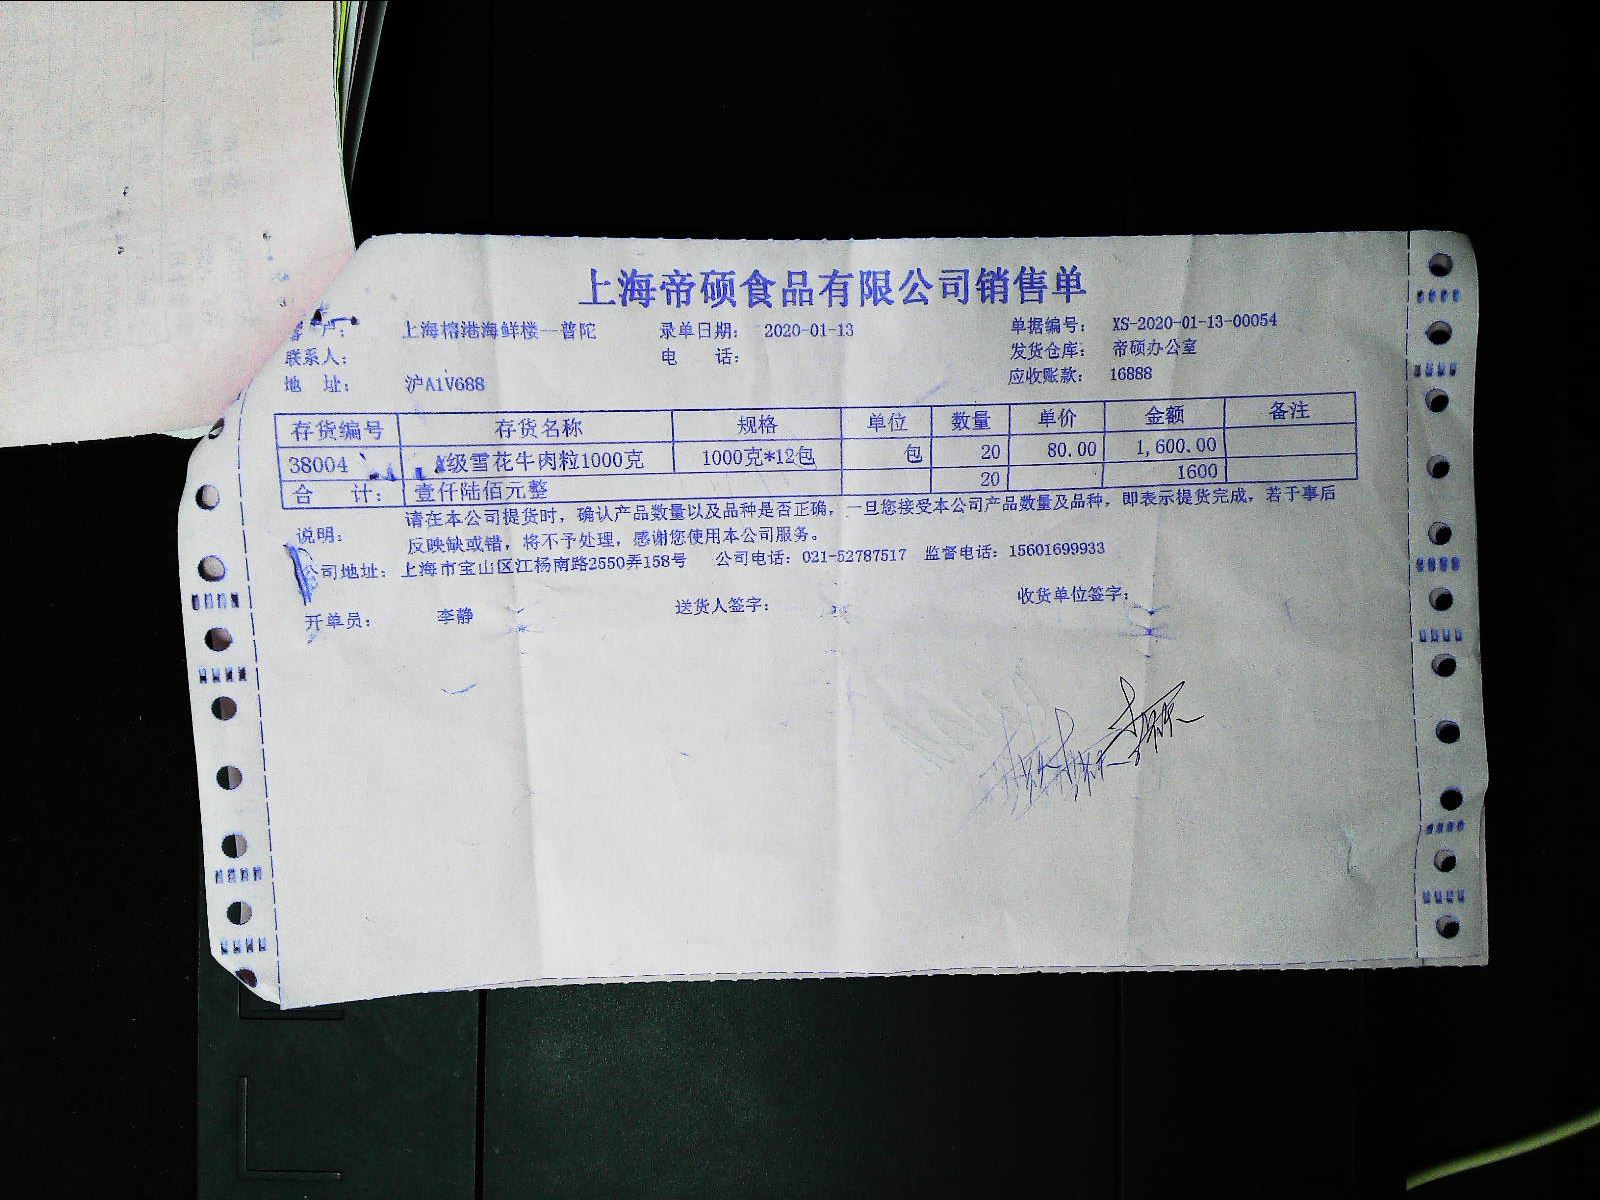 上海帝硕食品有限公司销售单
客 户： 上海榕港海鲜楼--普陀 录单日期： 2020-01-13 单据编号： XS-2020-01-13-00054
联系人： 电 话： 发货仓库： 帝硕办公室
地 址： 沪A1V688 应收账款： 16888
存货编号 存货名称 规格 单位 数量 单价 金额 备注
38004 A级雪花牛肉粒1000克 1000克*12包 包 20 80.00 1,600.00
合 计： 壹仟陆佰元整 20 1600
说明： 请在本公司提货时，确认产品数量以及品种是否正确，一旦您接受本公司产品数量及品种，即表示提货完成，若于事后
反映缺或错，将不予处理，感谢您使用本公司服务。
公司地址： 上海市宝山区江杨南路2550弄158号 公司电话：021-52787517 监督电话：15601699933
开单员： 李静 送货人签字： 收货单位签字：